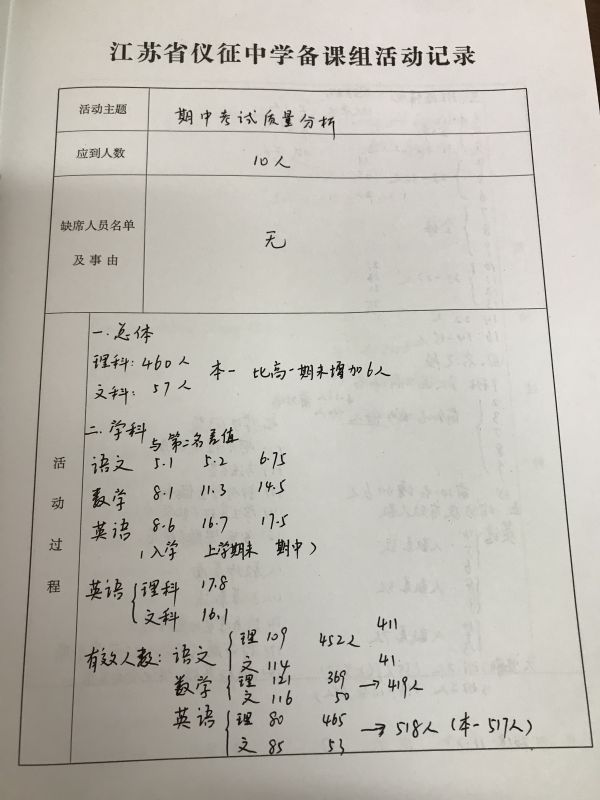 江苏省仪征中学备课组活动记录
活动主题 期中考试质量分析
应到人数 10人
缺席人员名单
及事由 无
活动过程
一.总体
理科:460人
文科:57人 本一 比高一期末增加6人
二.学科 与第二名差值
语文 5.1 5.2 6.75
数学 8.1 11.3 14.5
英语 8.6 16.7 17.5
(入学 上学期末 期中)
英语 { 理科 17.8
文科 16.1
有效人数: 语文 { 理 109 452人 411
文 114 41
数学 { 理 121 369 → 419人
文 116 50
英语 { 理 80 465 → 518人 (本一517人)
文 85 53